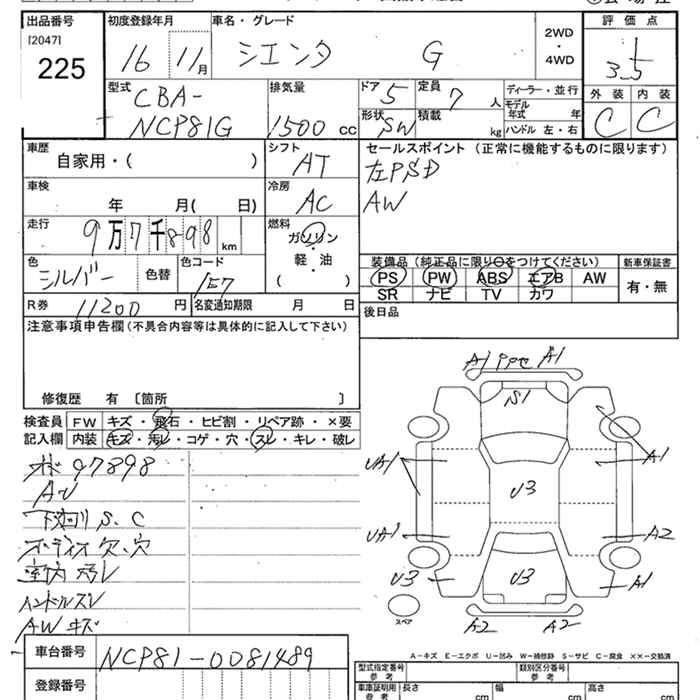 出品番号 初度登録年月 車名・グレード 2WD ・ 4WD 評価点
[2047]
225
16 11月 シエンタ G 3.5
型式 排気量 ドア 5 定員 7人 ディーラー・並行 外装 内装
CBA-
NCP81G 1500cc 形状 SW 積載 kg モデル年式 年 C C
ハンドル 左・右
車歴 シフト セールスポイント (正常に機能するものに限ります)
自家用・( ) AT 左PSD
車検 冷房 AW
年 月( 日) AC
走行 9万7千898km 燃料
ガソリン
・
軽・油
( )
装備品(純正品に限り○をつけてください) 新車保証書
PS PW ABS エアB AW 有・無
SR ナビ TV カワ
色 シルバー 色替 色コード 1E7
R券 11200円 名変通知期限 月 日 後日品
注意事項申告欄(不具合内容等は具体的に記入して下さい)
修復歴 有 〔箇所 〕
検査員 FW キズ・飛石・ヒビ割・リペア跡・×要
記入欄 内装 キズ・汚レ・コゲ・穴・スレ・キレ・破レ
メーター 97898
下廻り S、C
オーディオ欠、穴
室内汚レ
ハンドルスレ
AWキズ
A1 A1
S1
A1
U3
A2
U3
U3 A1
スペア
A2 A2
A-キズ E-エクボ U-凹み W-補修跡 S-サビ C-腐食 ××-交換済
車台番号 NCP81-0081489
登録番号
型式指定番号 参考 類別区分番号 参考
車庫証明用 参考 長さ cm 幅 cm 高さ cm